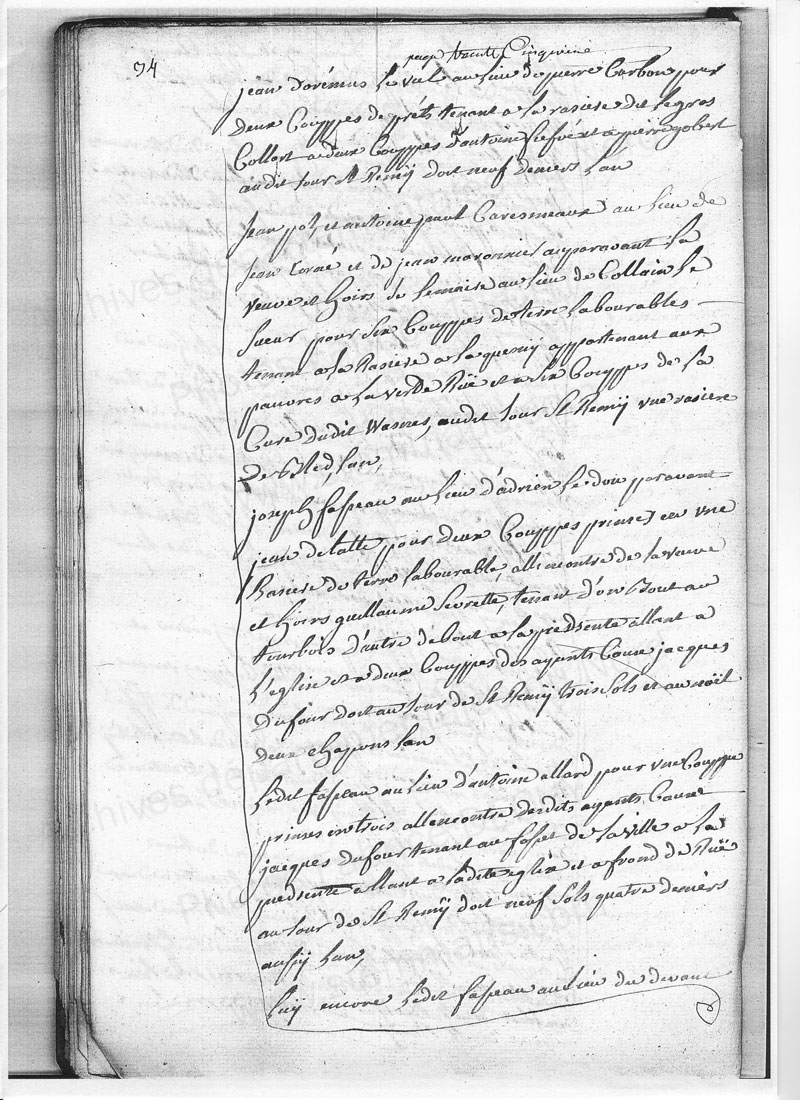 94
page trente Cinquieme
jean dorémus le viel au lieu de pierre Carbon pour
deux Couppes de préts tenant a la rasiere dit le gros
Collart a deux Couppes d'antoine et a pierre gobert
audit jour St Remÿ doit neuf deniers l'an
Jean pol, et antoine paul Caresmeaux au lieu de
Jean et de jean maronnier auparavant la
veuve et hoirs de au lieu de Collain le
sueur pour six Couppes de terre labourables
tenant a la Rasiere a la appartenant aux
pauvres a la verde Rüe et a six Couppes de la
Cure dudit Wasnes, audit jour St Remÿ une rasiere
de Bled, l'an,
joseph faspeau au lieu d'adrien le doux paravant
jean delatte pour deux Couppes prinses en une
Rasiere de terre labourable, allencontre de la veuve
et hoirs guillaume tenant d'un Bout au
tourbois d'autre debout a la piedsente allant a
l'eglise et a deux Couppes des ayants Cause jacques
dufour doit au jour de St Remÿ trois sols et au noël
deux chapons l'an
ledit faspeau au lieu d'antoine allard pour une Couppe
prinses en trois allencontre desdits ayants Cause
jacques dufour tenant au fosset de la ville a la
piedsente allant a ladite eglise et a frond de Rüe
au jour de St Remÿ doit neuf sols quatre deniers
aussÿ l'an,
luÿ encore ledit faspeau au lieu du devant